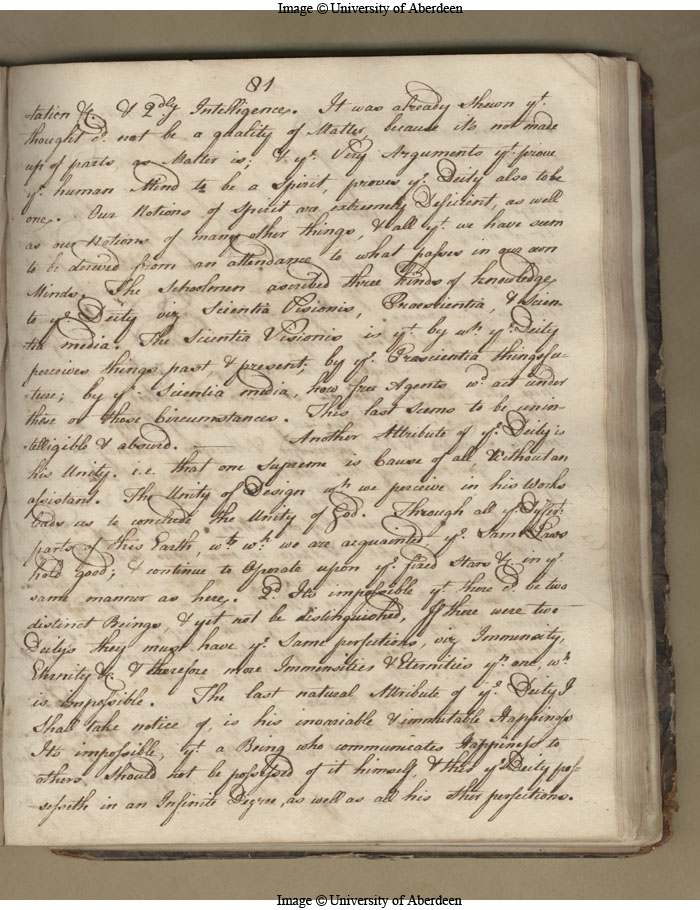 Image © University of Aberdeen
81
-tation &c. & 2dly Intelligence. It was already Shewn yt.
thought cd. not be a quality of Matter, because it's not made
up of parts as Matter is; & ye. Very Arguments yt. prove
ye. human Mind to be a Spirit, proves ye. Deity also to be
one. Our Notions of Spirit are extremely Deficient, as well
as our Notions of many other things, & all yt. we have seem
to be derived from an attendance to what passes in our own
Minds. The Schoolmen ascribed three kinds of knowledge
to ye. Deity viz Scientia Visionis, Praescientia, & Scien-
tia media. The Scientia Visionis is yt. by wh. ye. Deity
perceives things past, & present; by ye. Prascientia things fu-
ture; by ye. Scientia media, how free Agents wd. act under
these or those Circumstances. This last seems to be unin-
telligible & absurd. — Another Attribute of ye. Deity is
his Unity. i.e. that one Supreme is Cause of all, without an
assistant. The Unity of Design wh. we perceive in his Works
leads us to conclude the Unity of God. Through all ye. Diffnt.
parts of this Earth, wt. wh. we are acquainted ye. Same Laws
hold good; & continue to Operate upon ye. fixed Stars &c. in ye.
same manner as here. 2d. Its impossible yt. there cd. be two
distinct Beings, & yet not be distinguished. If there were two
Deitys they must have ye. Same perfections, viz Immensity,
Eternity &c. & therefore more Immensities & Eternities yn. one, wh.
is impossible. The last natural Attribute of ye. Deity I
Shall take notice of, is his invariable & immutable Happiness
Its impossible, yt. a Being who communicates Happiness to
others, Should not be possessed of it himself, & this ye. Deity pos-
-sesseth in an Infinite Degree, as well as all his other perfections.
Image © University of Aberdeen